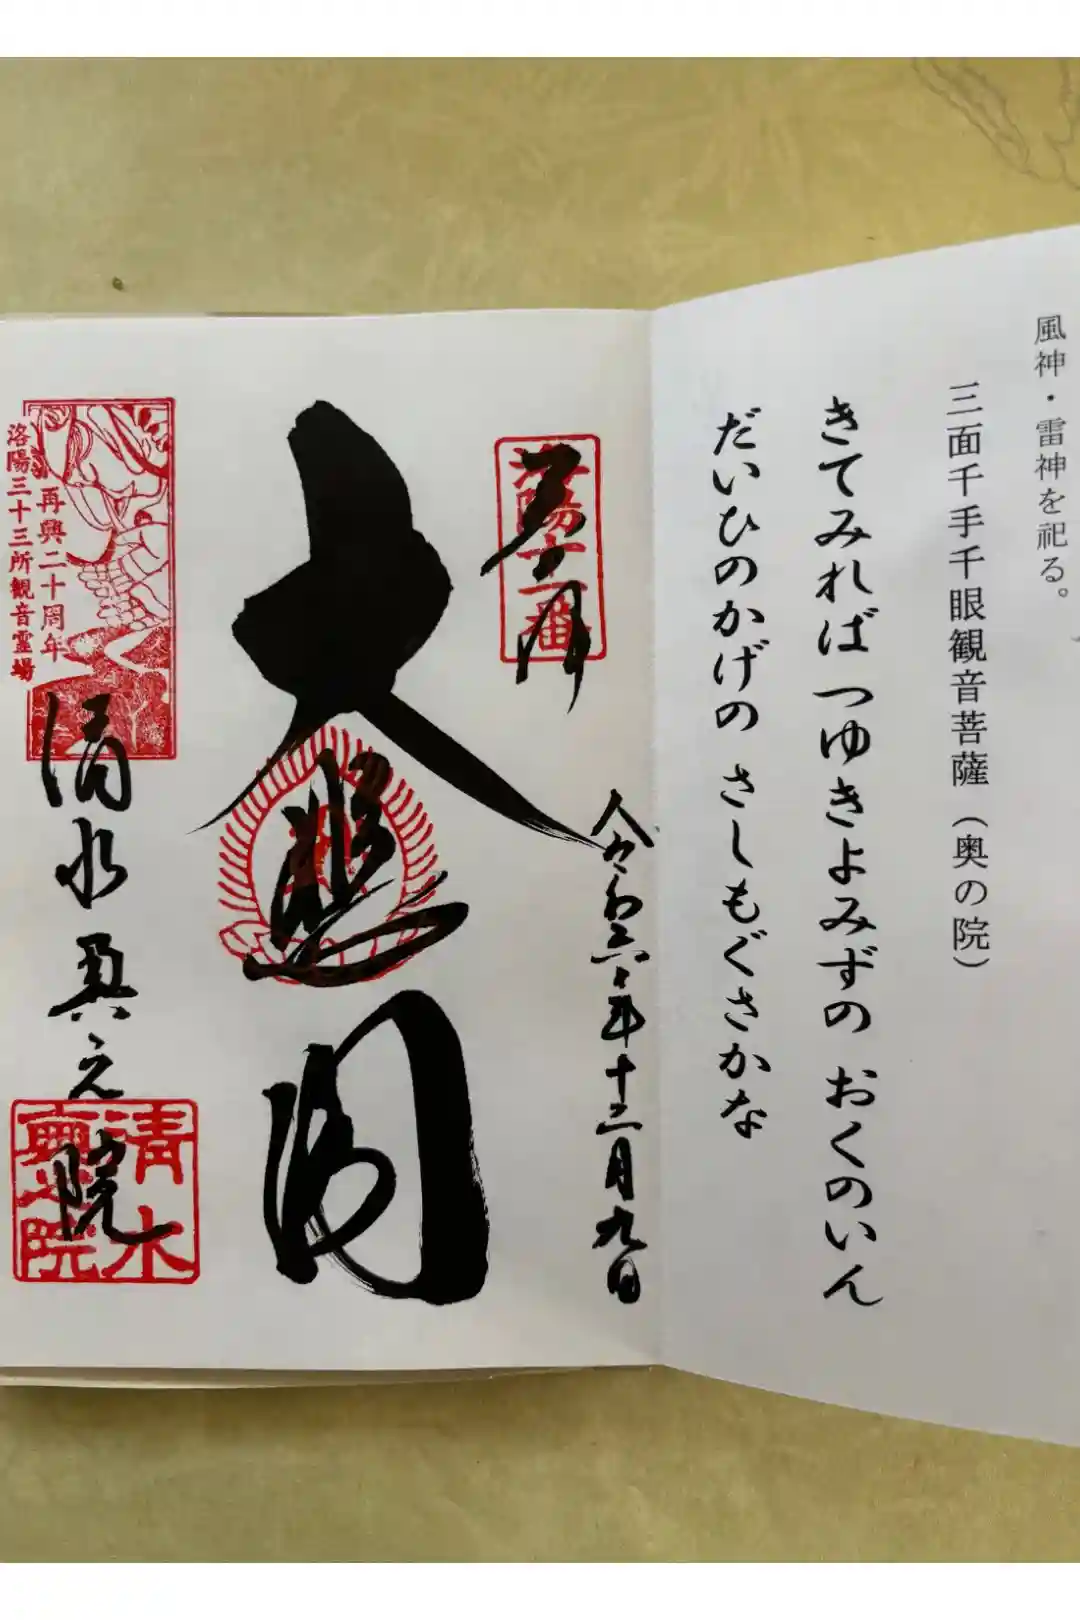 風神・雷神を祀る。
三面千手千眼観音菩薩(奥の院)
きてみれば つゆきよみずの おくのいん
だいひのかげの さしもぐさかな
奉拝
洛陽十一番
令和六年十二月九日
大悲閣
再興二十周年
洛陽三十三所観音霊場
清水奥之院
清水奥之院